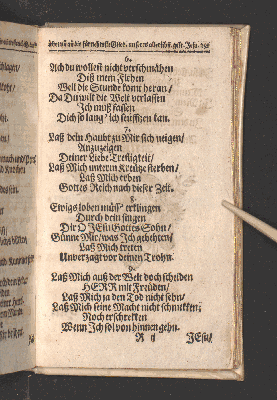 6.
Ach du wollest nicht verschmähen
Diß mein Flehen
Weil die Stunde komt heran/
Da Du wilt die Welt verlassen
Ich muß fassen
Dich so lang' ich seufftzen kan.
7.
Laß dein Haubt zu Mir sich neigen/
Anzuzeigen
Deiner Liebe Treffigkeit/
Laß Mich unterm Kreütze sterben/
Laß Mich erben
Gottes Reich nach dieser Zeit.
8.
Ewigs loben müss' erklingen
Durch dein singen
Dir O JEsu Gottes Sohn/
Gönne Mir/ was Ich gebehten/
Laß Mich treten
Unverzagt vor deinen Trohn.
9.
Laß Mich auß der Welt doch scheiden
HERR mit Freüden/
Laß Mich ja den Tod nicht sehn/
Laß Mich seine Macht nicht schmekken/
Noch erschrekken
Wenn Ich sol von hinnen gehn.
R ij JEsu/